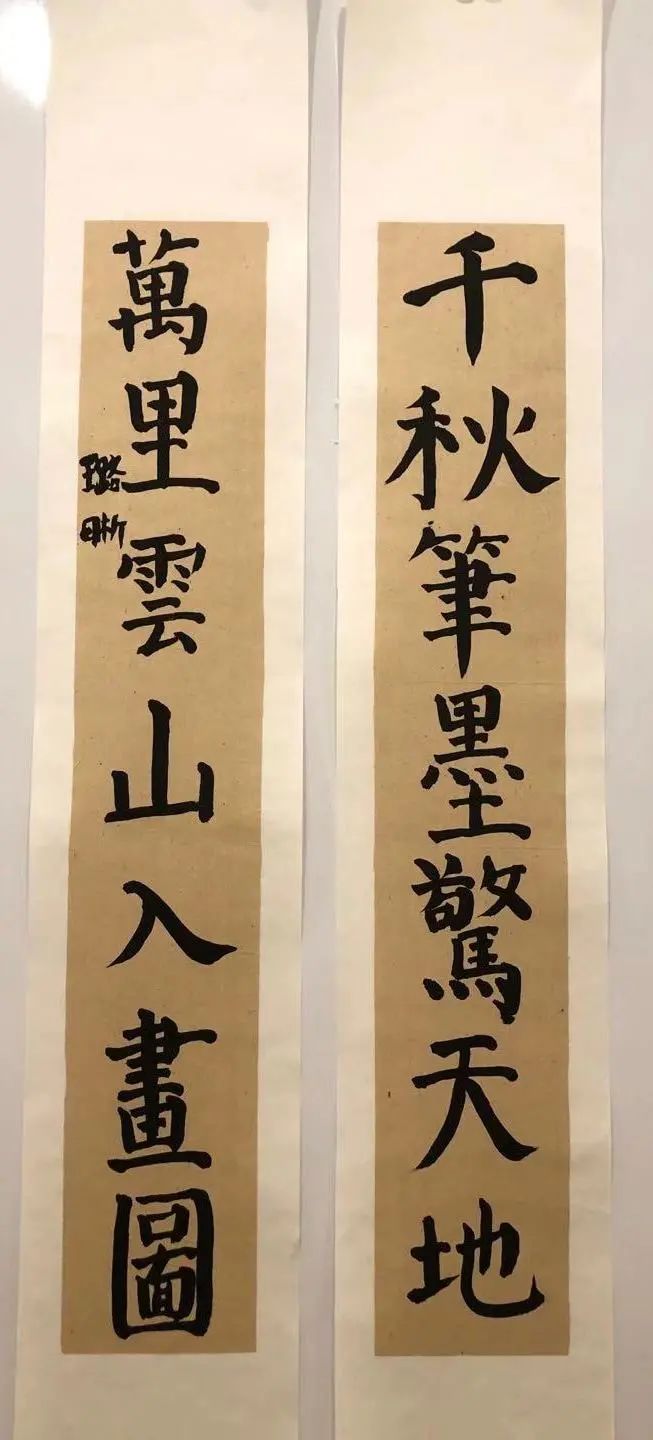 千秋筆墨驚天地
萬里雲山入畫圖
璐晰